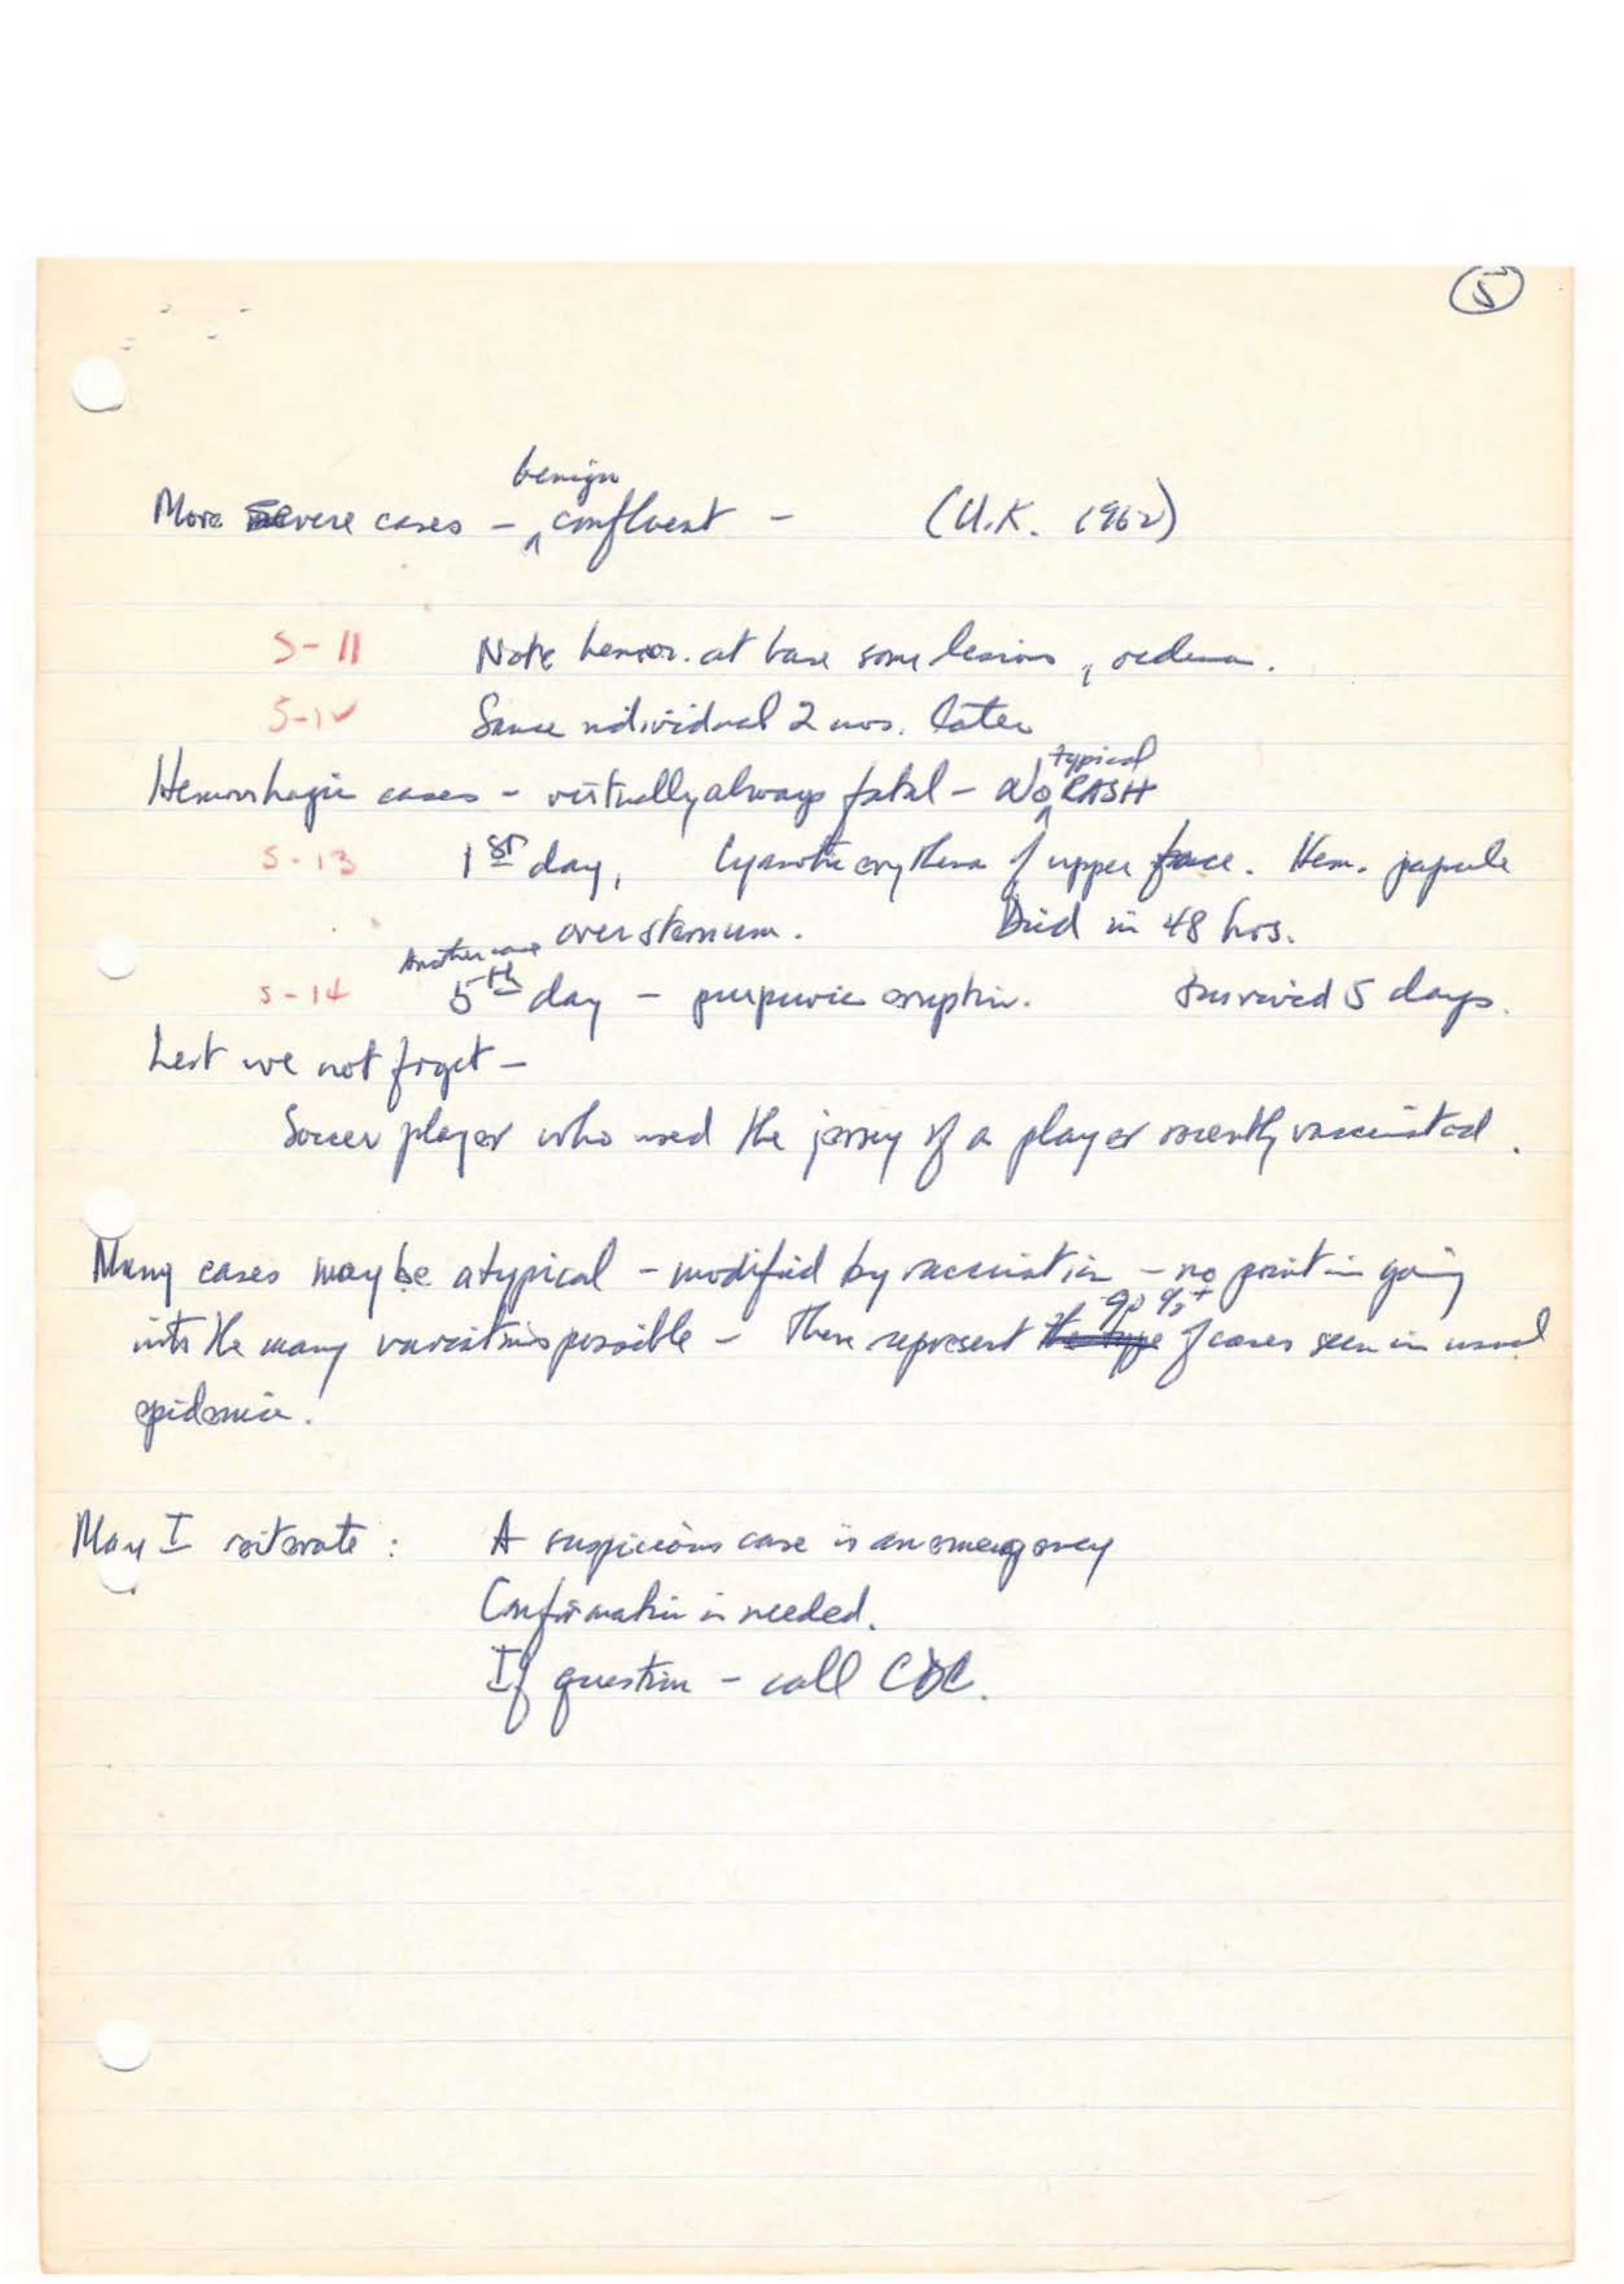 5
More severe cases - benign confluent - (U.K. 1962)
S-11 Note hemor. at base some lesions, oedema.
S-12 Same individual 2 mos. later
Hemorrhagic cases - virtually always fatal - No typical RASH
S-13 1st day, Cyanotic erythema of upper face. Hem. papule
over sternum. Died in 48 hrs.
S-14 Another case 5th day - purpuric eruption. Survived 5 days.
Lest we not forget -
Soccer player who used the jersey of a player recently vaccinated.
Many cases may be atypical - modified by vaccination - no point in going
into the many variations possible - These represent the type 90%+ of cases seen in usual
epidemic.
May I reiterate: A suspicious case is an emergency
Confirmation is needed.
If question - call CDC.